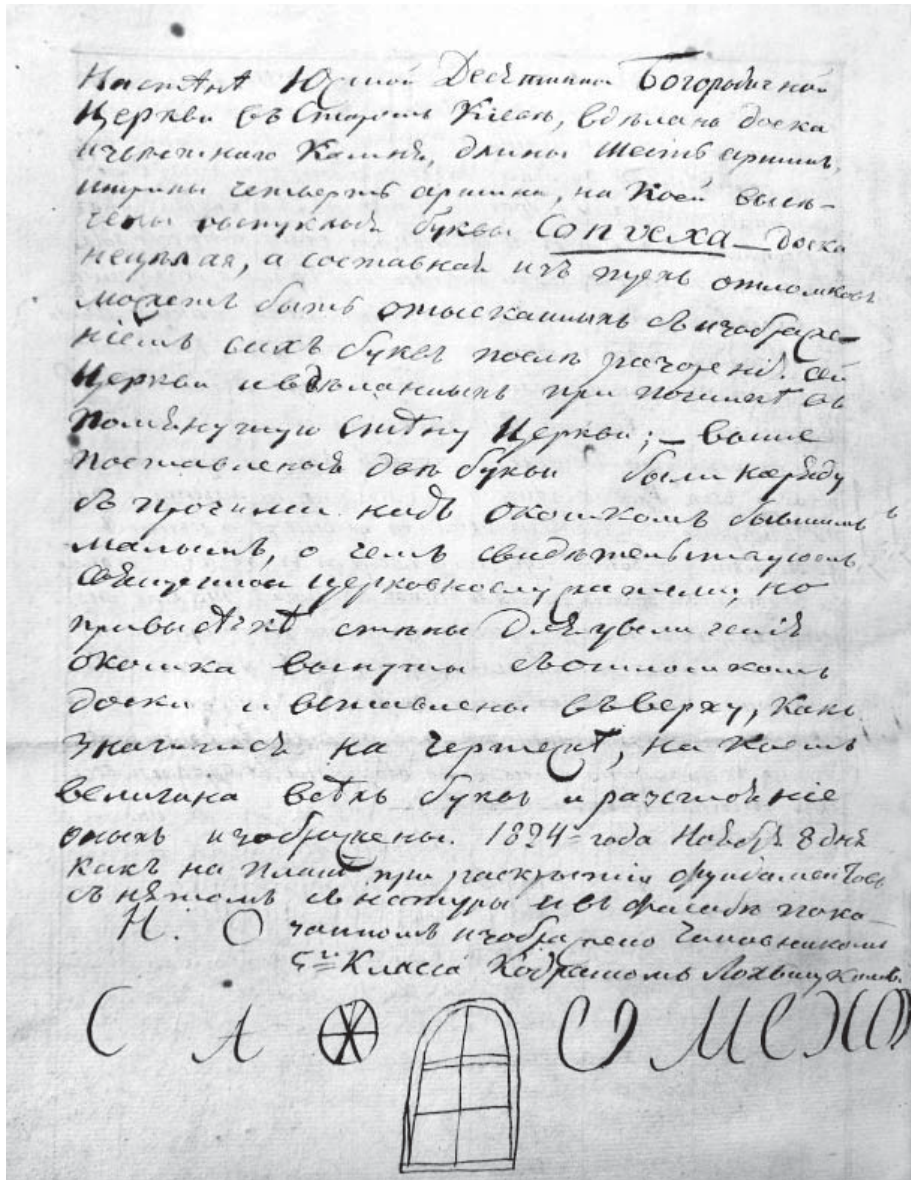 На стѣнѣ Южной Десѣтинной Богородичной
Церкви въ Старомъ Кіевѣ, вдѣлана доска
изъ Камнѣ, длины шесть аршинъ,
ширины четверть аршина, на Коей высѣ-
чены выпуклыѣ буквы Сопvеха — доска
нецѣлая, а составнаѣ изъ отломковъ
можетъ быть отысканныхъ съ изображе-
ніемъ сихъ буквъ послѣ разоренiѣ сей
Церкви и вдѣланныхъ при починкѣ въ
помѣнутую стѣну Церкви; — выше
поставленыѣ двѣ буквы были нарѣду
съ прочими надъ окошкомъ бывшимъ
малымъ, о чемъ свидѣтельствуютъ
свѣщенно и церковнослужители, но
при высѣчкѣ стѣны длѣ увеличеніѣ
окошка вынуты съ отломкомъ
доски и вставлены въ верху, какъ
значитсѣ на чертежѣ, на коемъ
величина всѣхъ буквъ и разстоѣніе
оныхъ изображены. 1824го года Ноѣбрѣ 8 днѣ
какъ на планѣ при раскрытіи фундаментовъ
съ натуры и въ фасадѣ пока-
Н. О занномъ изображено Чиновникомъ
5го Класса Кондратомъ Лохвицкимъ.
С А О М С Х О